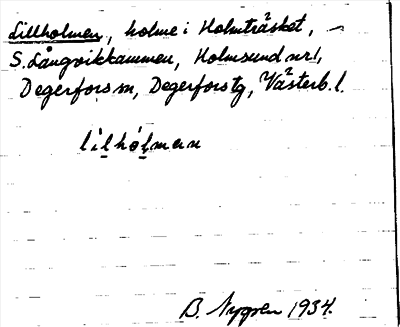 Lillholmen, holme i Holmträsket, –
S. Långvikkammen, Holmsund nr 1,
Degerfors sn, Degerfors tg, Västerb. l.
lilhólmen
B. Nygren 1934.